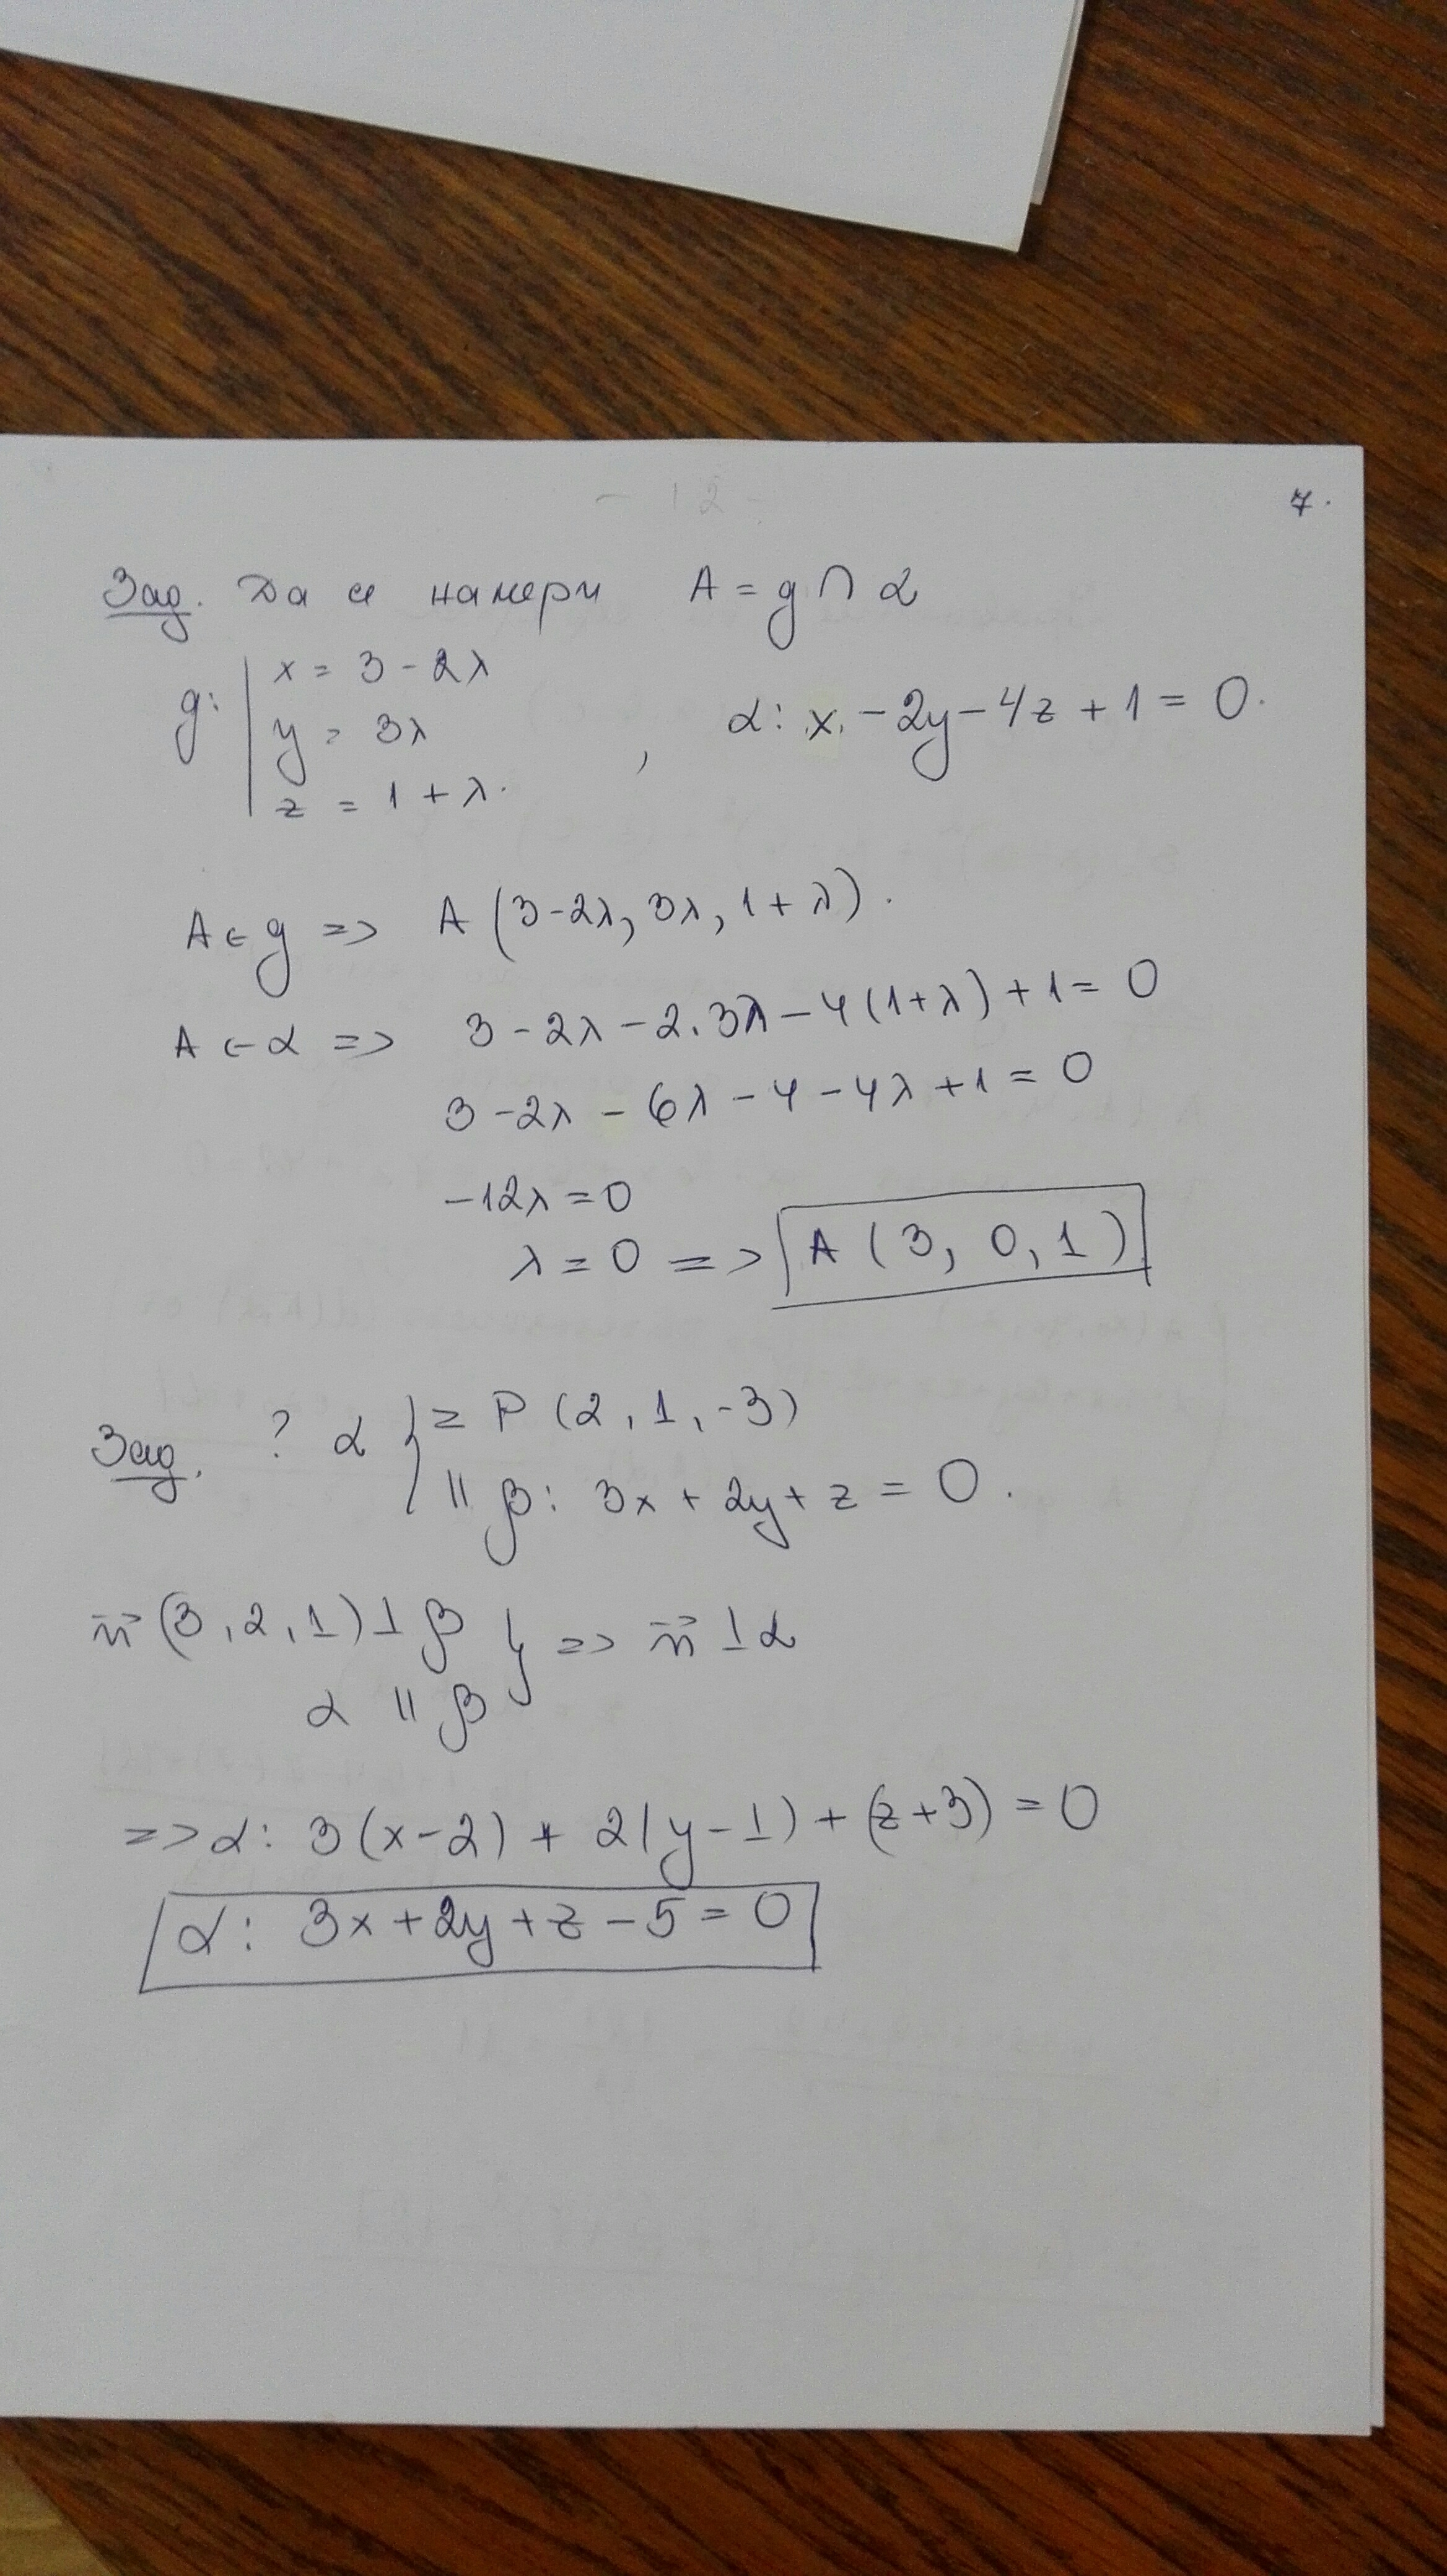 - 12 -
7.
Зад. Да се намери A = g ∩ α
g: | x = 3 - 2λ
y = 3λ
z = 1 + λ.
, α: x - 2y - 4z + 1 = 0.
A ∈ g => A (3-2λ, 3λ, 1+λ).
A ∈ α => 3 - 2λ - 2.3λ - 4(1+λ) + 1 = 0
3 - 2λ - 6λ - 4 - 4λ + 1 = 0
-12λ = 0
λ = 0 => A (3, 0, 1)
Зад. ? α { ≥ P (2, 1, -3)
|| β: 3x + 2y + z = 0.
n⃗ (3, 2, 1) ⊥ β } => n⃗ ⊥ α
α || β
=> α: 3(x-2) + 2(y-1) + (z+3) = 0
α: 3x + 2y + z - 5 = 0